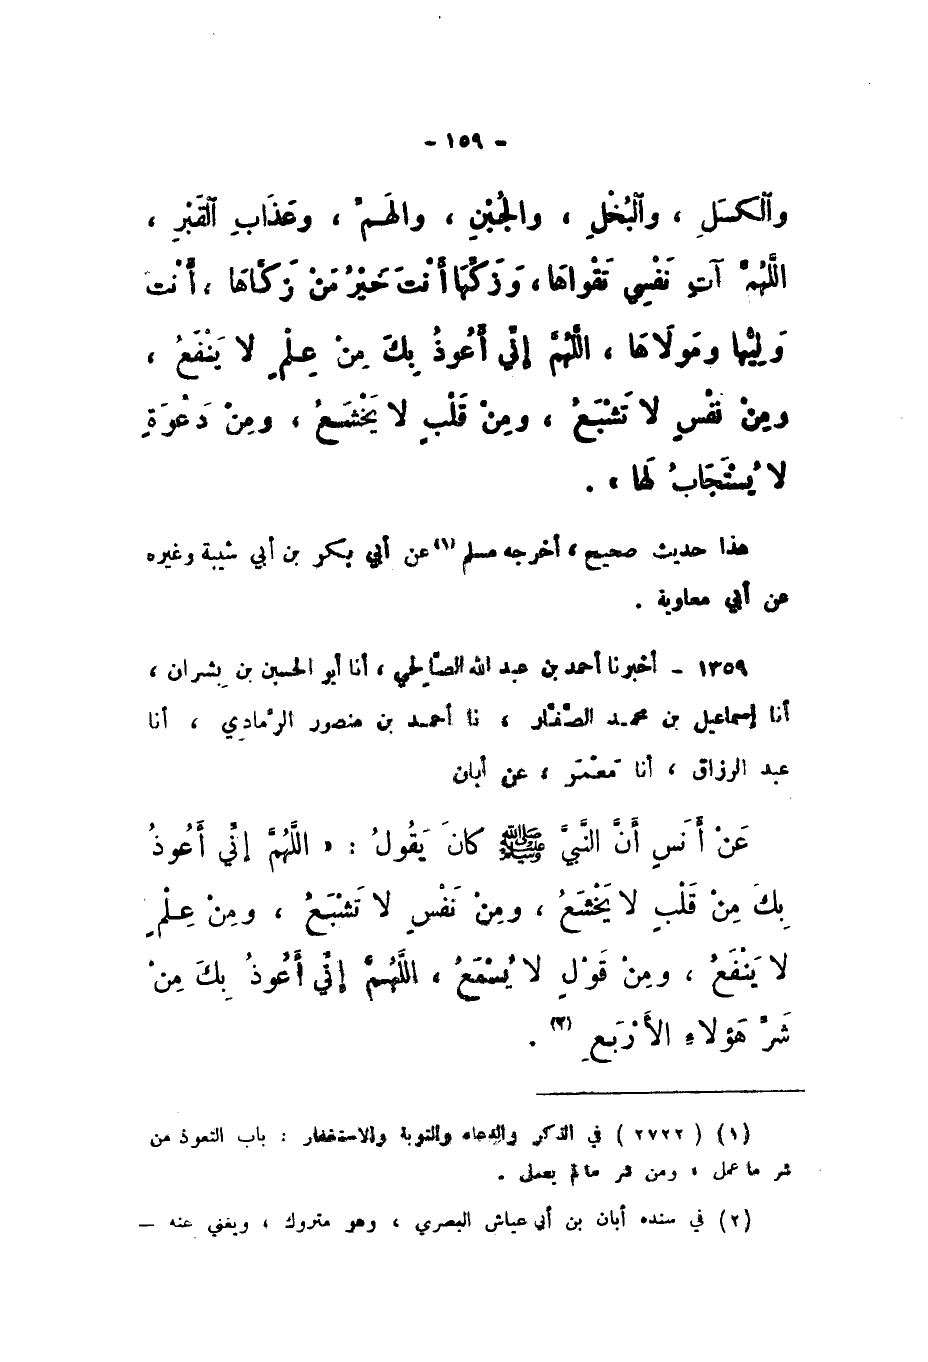 - ١٥٩ -
وَٱلْكَسَلِ ، وَٱلْبُخْلِ ، والْجُبْنِ ، والْهَمِّ ، وعَذَابِ ٱلْقَبْرِ ،
اللَّهُمَّ آتِ نَفْسِي تَقْوَاهَا ، وَزَكِّهَا أَنْتَ خَيْرُ مَنْ زَكَّاهَا ، أَنْتَ
وَلِيُّها ومَوْلَاهَا ، اللَّهُمَّ إِنِّي أَعُوذُ بِكَ مِنْ عِلْمٍ لا يَنْفَعُ ،
ومِنْ نَفْسٍ لا تَشْبَعُ ، ومِنْ قَلْبٍ لا يَخْشَعُ ، ومِنْ دَعْوَةٍ
لا يُسْتَجَابُ لَها » .
هذا حديث صحيح ، أخرجه مسلم (١) عن أبي بكر بن أبي شيبة وغيره
عن أبي معاوية .
١٣٥٩ - أخبرنا أحمد بن عبد الله الصَّالحي ، أنا أبو الحسين بن بِشران ،
أنا إسماعيل بن محمد الصَّفّار ، نا أحمد بن منصور الرَّمادي ، أنا
عبد الرزاق ، أنا مَعْمَر ، عن أبان
عَنْ أَنَسٍ أَنَّ النَّبِيَّ ﷺ كانَ يَقُولُ : « اللَّهُمَّ إِنِّي أَعُوذُ
بِكَ مِنْ قَلْبٍ لا يَخْشَعُ ، ومِنْ نَفْسٍ لا تَشْبَعُ ، ومِنْ عِلْمٍ
لا يَنْفَعُ ، ومِنْ قَوْلٍ لا يُسْمَعُ ، اللَّهُمَّ إِنِّي أَعُوذُ بِكَ مِنْ
شَرِّ هَؤُلاءِ الأَرْبَعِ (٢) .
(١) ( ٢٧٢٢ ) في الذكر والدعاء والتوبة والاستغفار : باب التعوذ من
شر ما عمل ، ومن شر ما لم يعمل .
(٢) في سنده أبان بن أبي عياش البصري ، وهو متروك ، ويغني عنه –